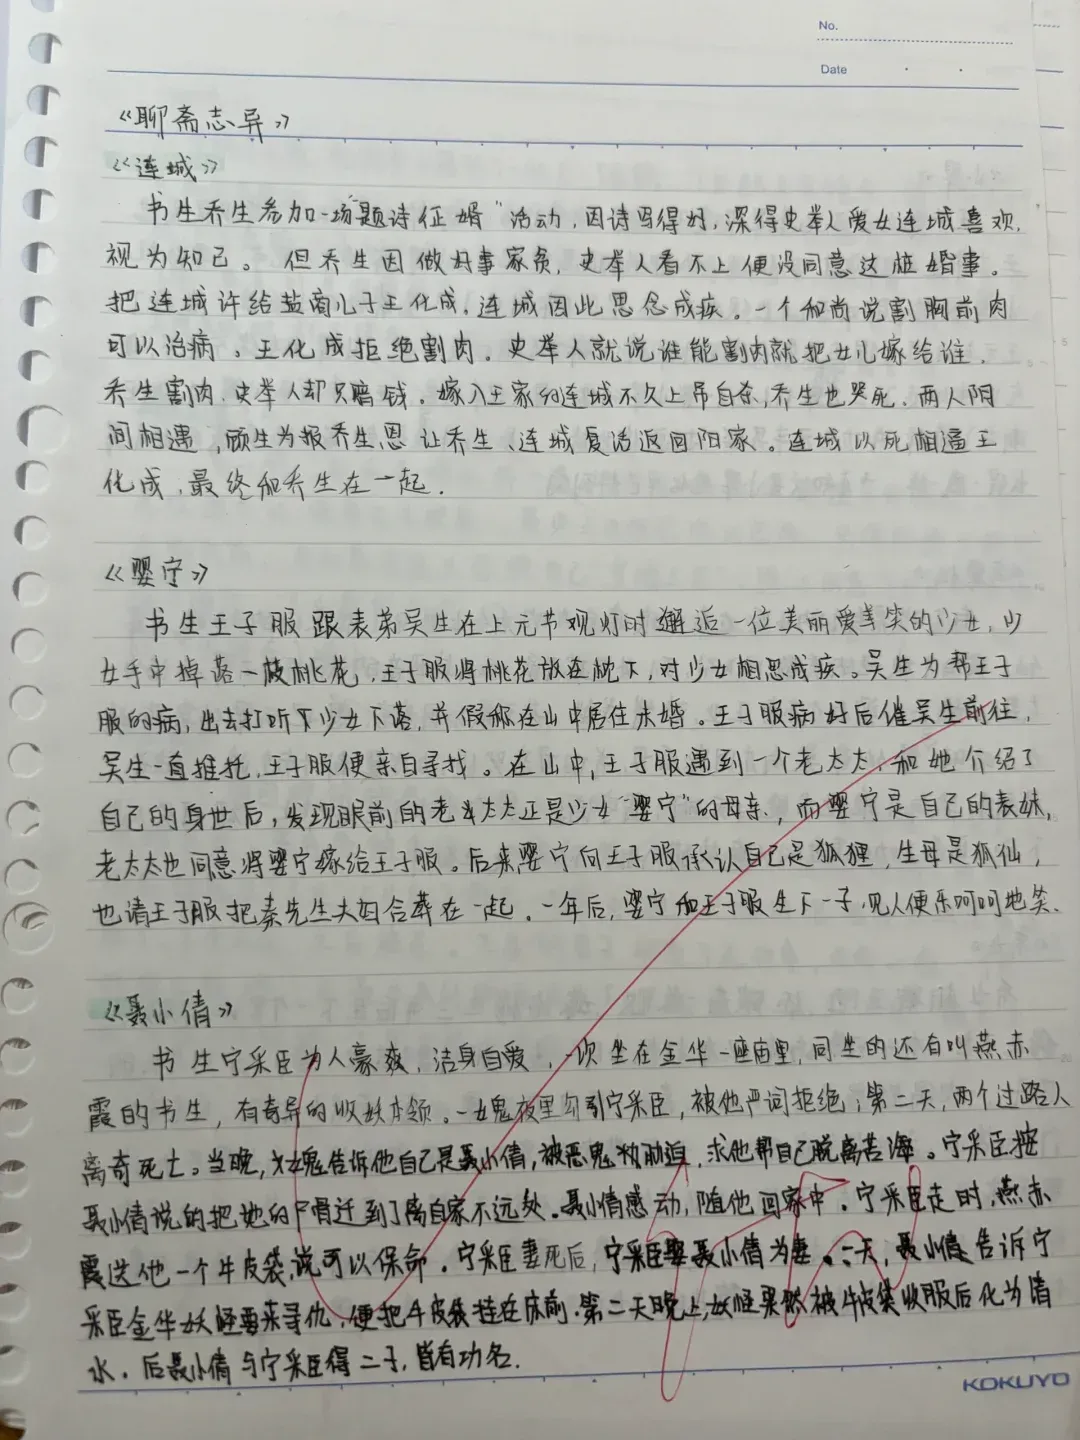 No.
Date
《聊斋志异》
《连城》
书生乔生参加一场"题诗征婚"活动,因诗写得好,深得史举人爱女连城喜欢,
视为知己。但乔生因做好事家负,史举人看不上便没同意这桩婚事。
把连城许给盐商儿子王化成,连城因此思念成疾。一个和尚说割胸前肉
可以治病。王化成拒绝割肉。史举人就说谁能割肉就把女儿嫁给谁.
乔生割肉.史举人却只赔钱。嫁入王家的连城不久上吊自杀,乔生也哭死.两人阴
间相遇,顾生为报乔生恩让乔生、连城复活返回阳家。连城以死相逼王
化成,最终和乔生在一起.
《婴宁》
书生王子服跟表弟吴生在上元节观灯时邂逅一位美丽爱笑的少女,少
女手中掉落一枝桃花,王子服将桃花放在枕下,对少女相思成疾。吴生为帮王子
服的病,出去打听下少女下落,并假称在山中居住未婚。王子服病好后催吴生前往,
吴生一直推托,王子服便亲自寻找。在山中,王子服遇到一个老太太,和她介绍了
自己的身世后,发现眼前的老太太正是少女"婴宁"的母亲,而婴宁是自己的表妹,
老太太也同意将婴宁嫁给王子服。后来婴宁向王子服承认自己是狐狸,生母是狐仙,
也请王子服把秦先生夫妇合葬在一起。一年后,婴宁和王子服生下一子,见人便乐呵呵地笑.
《聂小倩》
书生宁采臣为人豪爽,洁身自爱,一次坐在金华一座庙里,同坐的还有叫燕赤
霞的书生,有奇异的收妖本领。一女鬼夜里勾引宁采臣,被他严词拒绝;第二天,两个过路人
离奇死亡。当晚,女鬼告诉他自己是聂小倩,被恶鬼胁迫,求他帮自己脱离苦海。宁采臣按
聂小倩说的把她的尸骨迁到了离自家不远处。聂小倩感动,随他回家中。宁采臣走时,燕赤
霞送他一个牛皮袋,说可以保命。宁采臣妻死后,宁采臣娶聂小倩为妻。一天,聂小倩告诉宁
采臣金华妖怪要来寻仇,便把牛皮袋挂在床前.第二天晚上,妖怪果然被牛皮袋收服后化为清
水。后聂小倩与宁采臣得二子,皆有功名.
KOKUYO